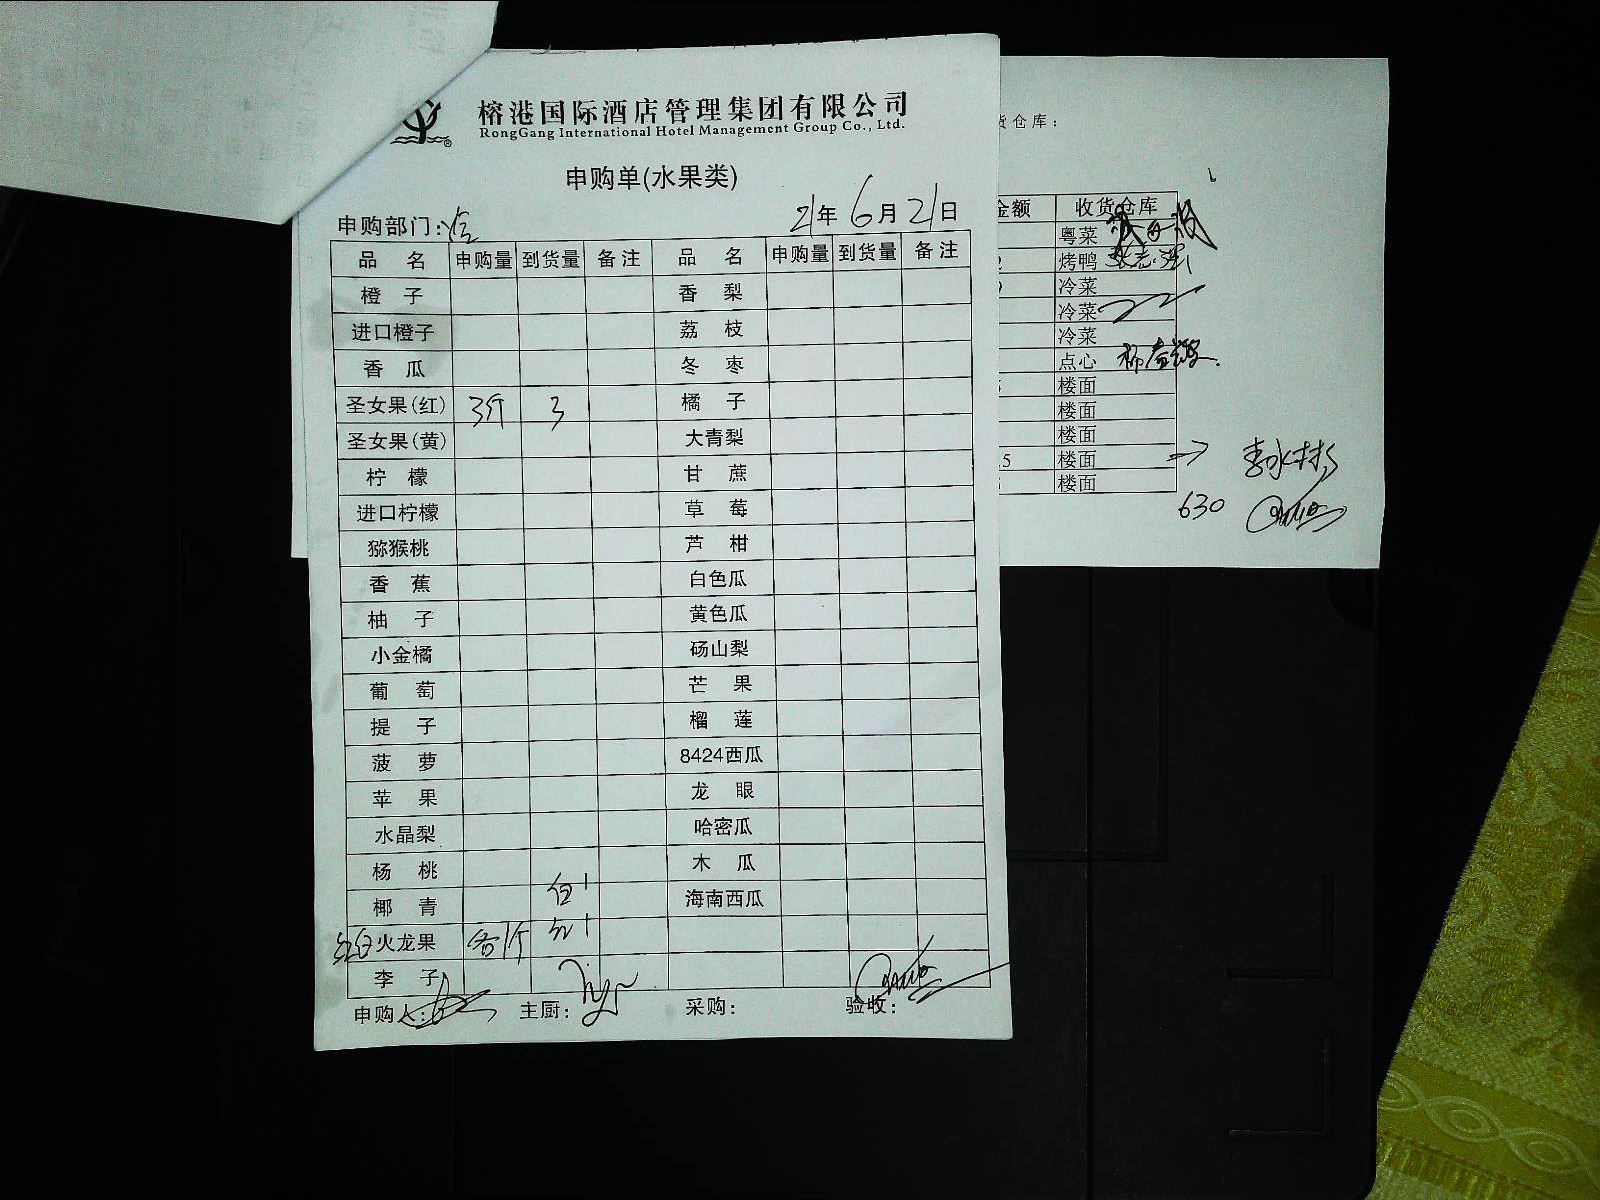 榕港国际酒店管理集团有限公司
RongGang International Hotel Management Group Co., Ltd.
申购单(水果类)
申购部门: 21年6月21日
品名 申购量 到货量 备注 品名 申购量 到货量 备注
橙子 香梨
进口橙子 荔枝
香瓜 冬枣
圣女果(红) 3斤 3 橘子
圣女果(黄) 大青梨
柠檬 甘蔗
进口柠檬 草莓
猕猴桃 芦柑
香蕉 白色瓜
柚子 黄色瓜
小金橘 砀山梨
葡萄 芒果
提子 榴莲
菠萝 8424西瓜
苹果 龙眼
水晶梨 哈密瓜
杨桃 木瓜
椰青 白1 海南西瓜
红白火龙果 各1个 红1
李子
申购人: 主厨: 采购: 验收:
货仓库:
金额 收货仓库
粤菜
烤鸭
冷菜
冷菜
冷菜
点心
楼面
楼面
楼面
.5 楼面
楼面
630